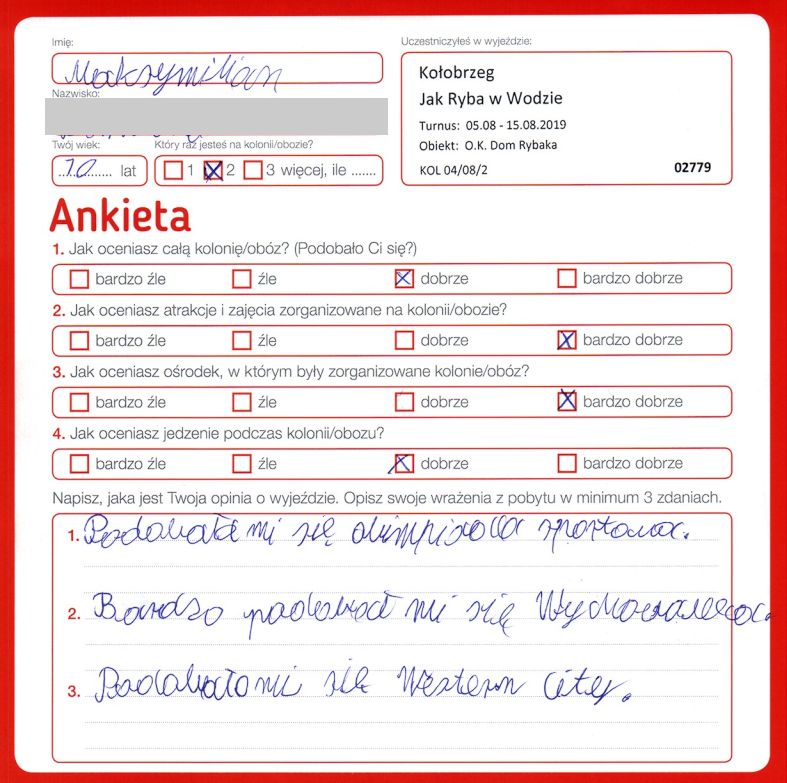 Imię:
Maksymilian
Nazwisko:
Twój wiek:
10 lat
Który raz jesteś na kolonii/obozie?
1 2 3 więcej, ile .......
Uczestniczyłeś w wyjeździe:
Kołobrzeg
Jak Ryba w Wodzie
Turnus: 05.08 - 15.08.2019
Obiekt: O.K. Dom Rybaka
KOL 04/08/2 02779
Ankieta
1. Jak oceniasz całą kolonię/obóz? (Podobało Ci się?)
bardzo źle źle dobrze bardzo dobrze
2. Jak oceniasz atrakcje i zajęcia zorganizowane na kolonii/obozie?
bardzo źle źle dobrze bardzo dobrze
3. Jak oceniasz ośrodek, w którym były zorganizowane kolonie/obóz?
bardzo źle źle dobrze bardzo dobrze
4. Jak oceniasz jedzenie podczas kolonii/obozu?
bardzo źle źle dobrze bardzo dobrze
Napisz, jaka jest Twoja opinia o wyjeździe. Opisz swoje wrażenia z pobytu w minimum 3 zdaniach.
1. Podobała mi się olimpiada sportowa.
2. Bardzo podobał mi się Wychowawca.
3. Podobało mi się Western City.